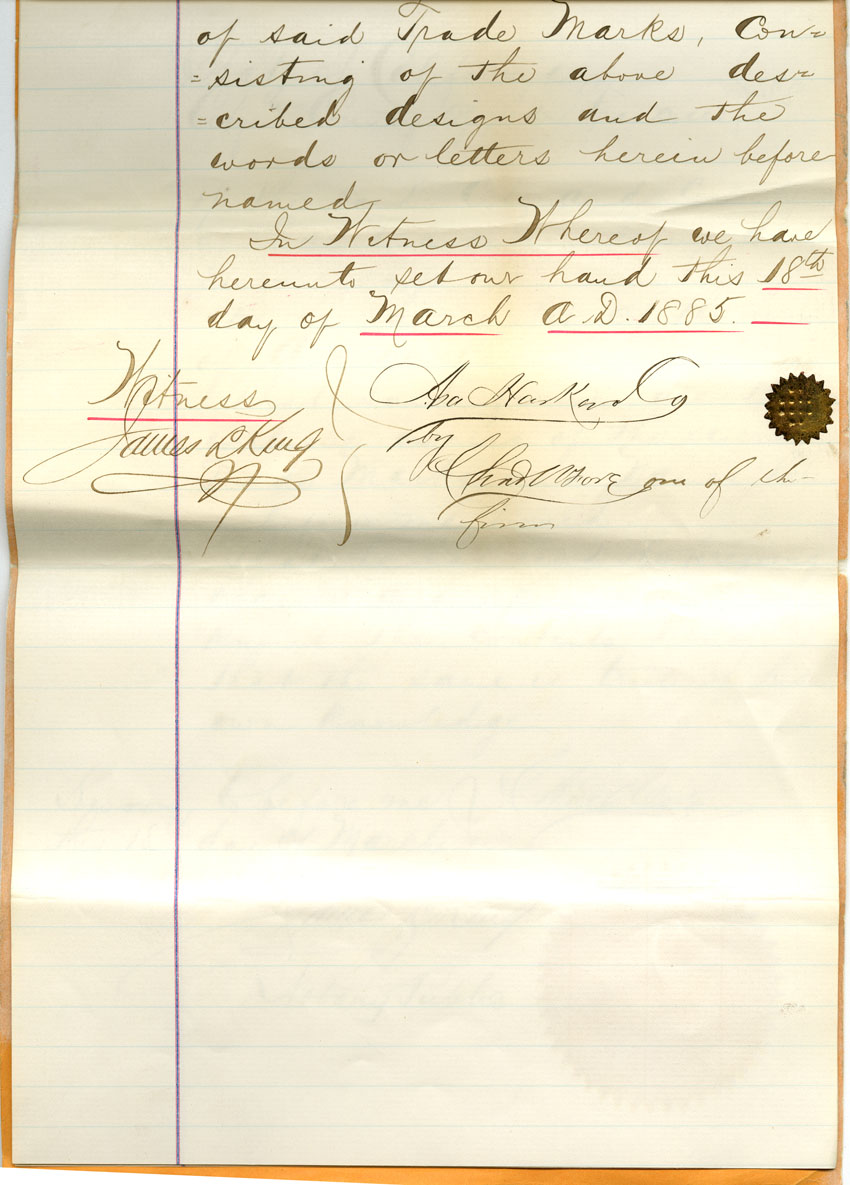 of said Trade Marks, Con=
=sisting of the above des=
=cribed designs and the
words or letters herein before
named
In Witness Whereof we have
hereunto set our hand this 18th
day of March A.D. 1885.
Witness
James L King
Asa Harker & Co
by
one of the
firm